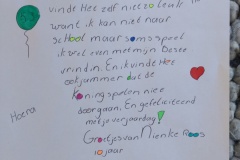 vinde Het zelf niet zo leuk
want ik kan niet naar
school maar soms speel
ik wel even met mijn beste
vrindin. En ik vinde Het
ook jammer dat de
koningspelen niet
doorgaan. En gefeliciteerd
met je verjaardag!
Hoera
Groetjes van Nienke Roos
10 jaar